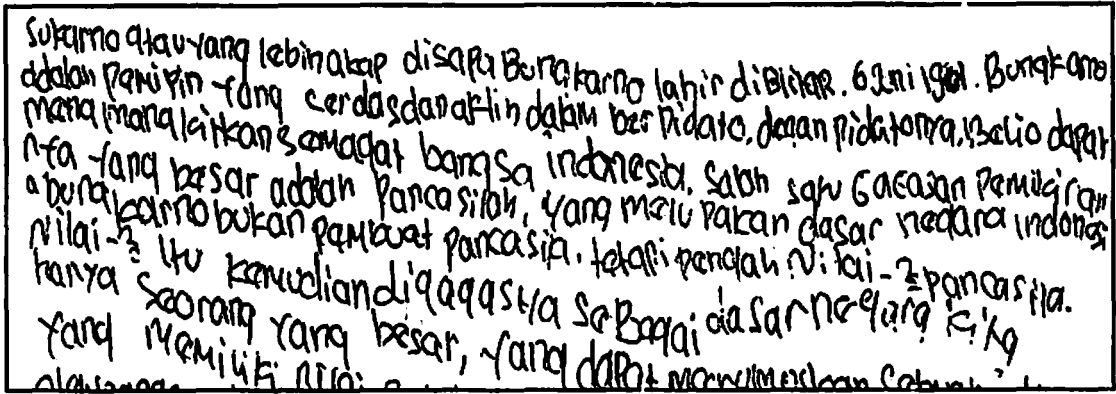 Sukarno atau yang lebin akap disapa Bung karno lahir di Blitar. 6 Juni 1901. Bung karno
adalan pamipin yang cerdas dan aktin dalam berpidato. dengan pidatonya, Belio dapat
mana mangkitkan semagat bangsa indonesia. salah satu Gagasan pemikiran
nya yang besar adalan Pancasilah, yang merupakan dasar negara indonesi
a bung karno bukan pambuat pancasila. tetapi pengali Nilai-2 pancasila.
Nilai-2 itu kemudian digagasnya sebagai dasar negara kita
hanya seorang yang besar, yang dapat
yang memiliki nilai